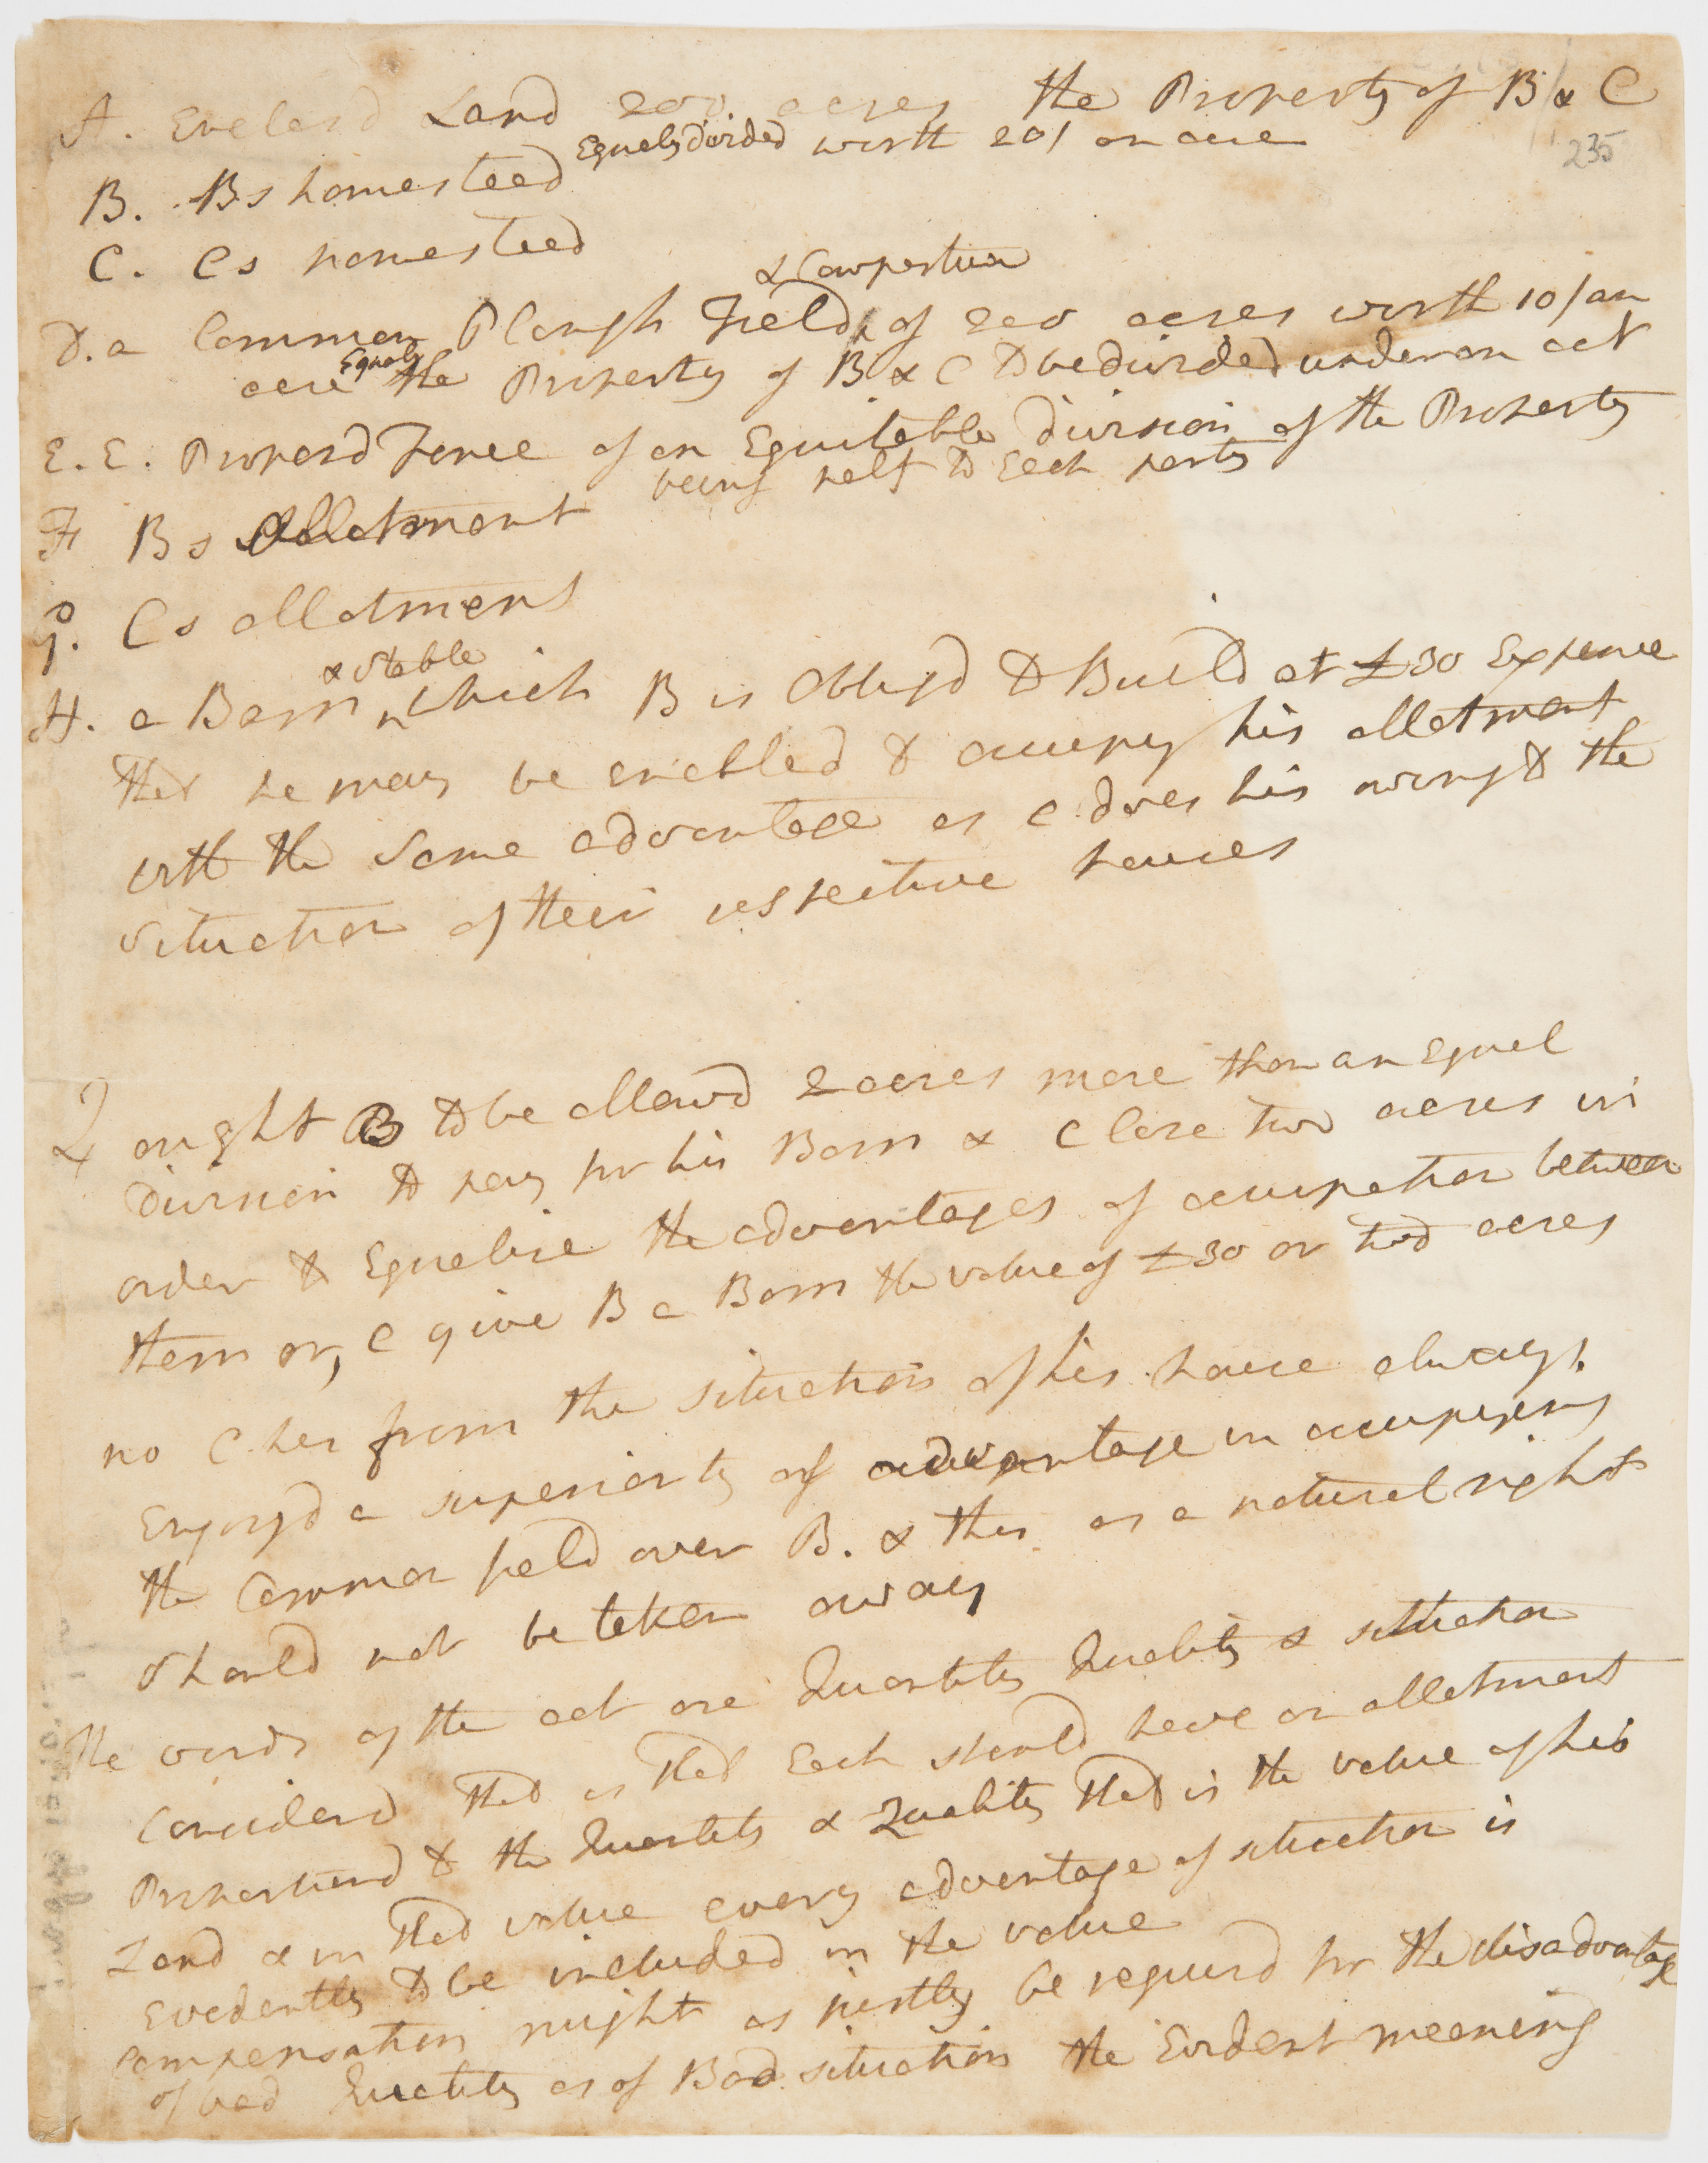 A. Enclosd Land 200 acres the Property of B & C
235
Equaly divided worth 20/ an acre
B. Bs homesteed
C. Cs homesteed
& Cowpasture
D. a Common Plough Field, of 200 acres worth 10/ an
acre Equaly the Property of B & C to be divided under an act
E. E. Propersd Fence of an Equitable division of the Property
being half to Each party
F Bs Allotment
G. Cs allotment
& Stable
H. a Barn which B is Obligd to Build at £30 Expence
that he may be enabled to occupy his allotment
with the same advantage as C does his owing to the
situation of their respective houses
Q ought B to be allowd 2 acres more than an Equal
division to pay for his Barn & C lose two acres in
order to Equalise the advantages of occupation between
them or, C give B a Barn the value of £30 or two acres
no C has from the situation of his house always
Enjoyd a superiority of advantage in occupying
the Common field over B. & this as a natural right
should not be taken away
The words of the act are Quantity Quality & situation
Considerd that is that Each should have an allotment
Proportiond to the Quantity & Quality that is the value of his
Land & in that value every advantage of situation is
Evedently to be included in the value
compensation might as justly be requird for the disadvantage
of bad Quality as of Bad situation the Evident meaning